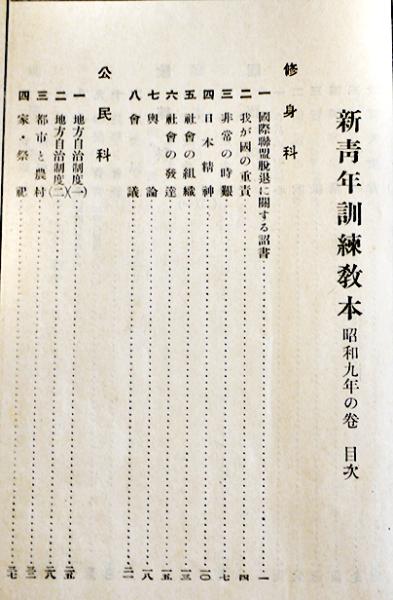 新靑年訓練敎本 昭和九年の卷 目次
修身科
一 國際聯盟脫退に關する詔書 一
二 我が國の重責 四
三 非常の時艱 七
四 日本精神 一〇
五 社會の組織 一三
六 社會の發達 一五
七 輿論 一八
八 會議 二一
公民科
一 地方自治制度(一) 二五
二 地方自治制度(二) 二八
三 都市と農村 三二
四 家・祭祀 三七